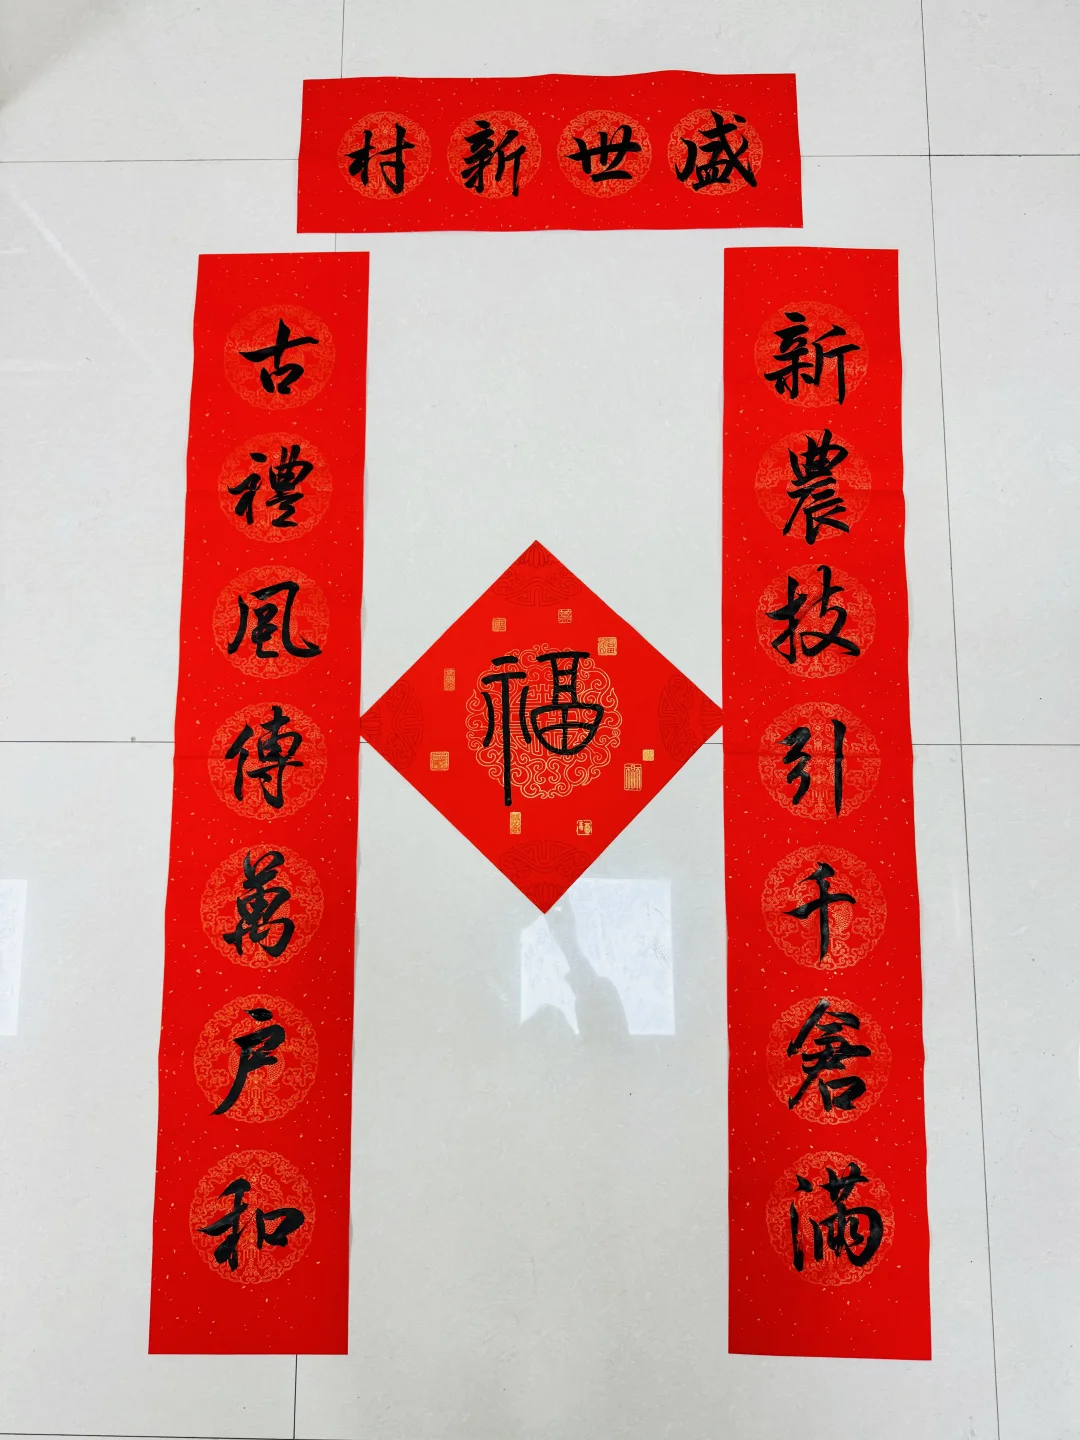 盛世新村
新農技引千倉滿
古禮風傳萬户和
福